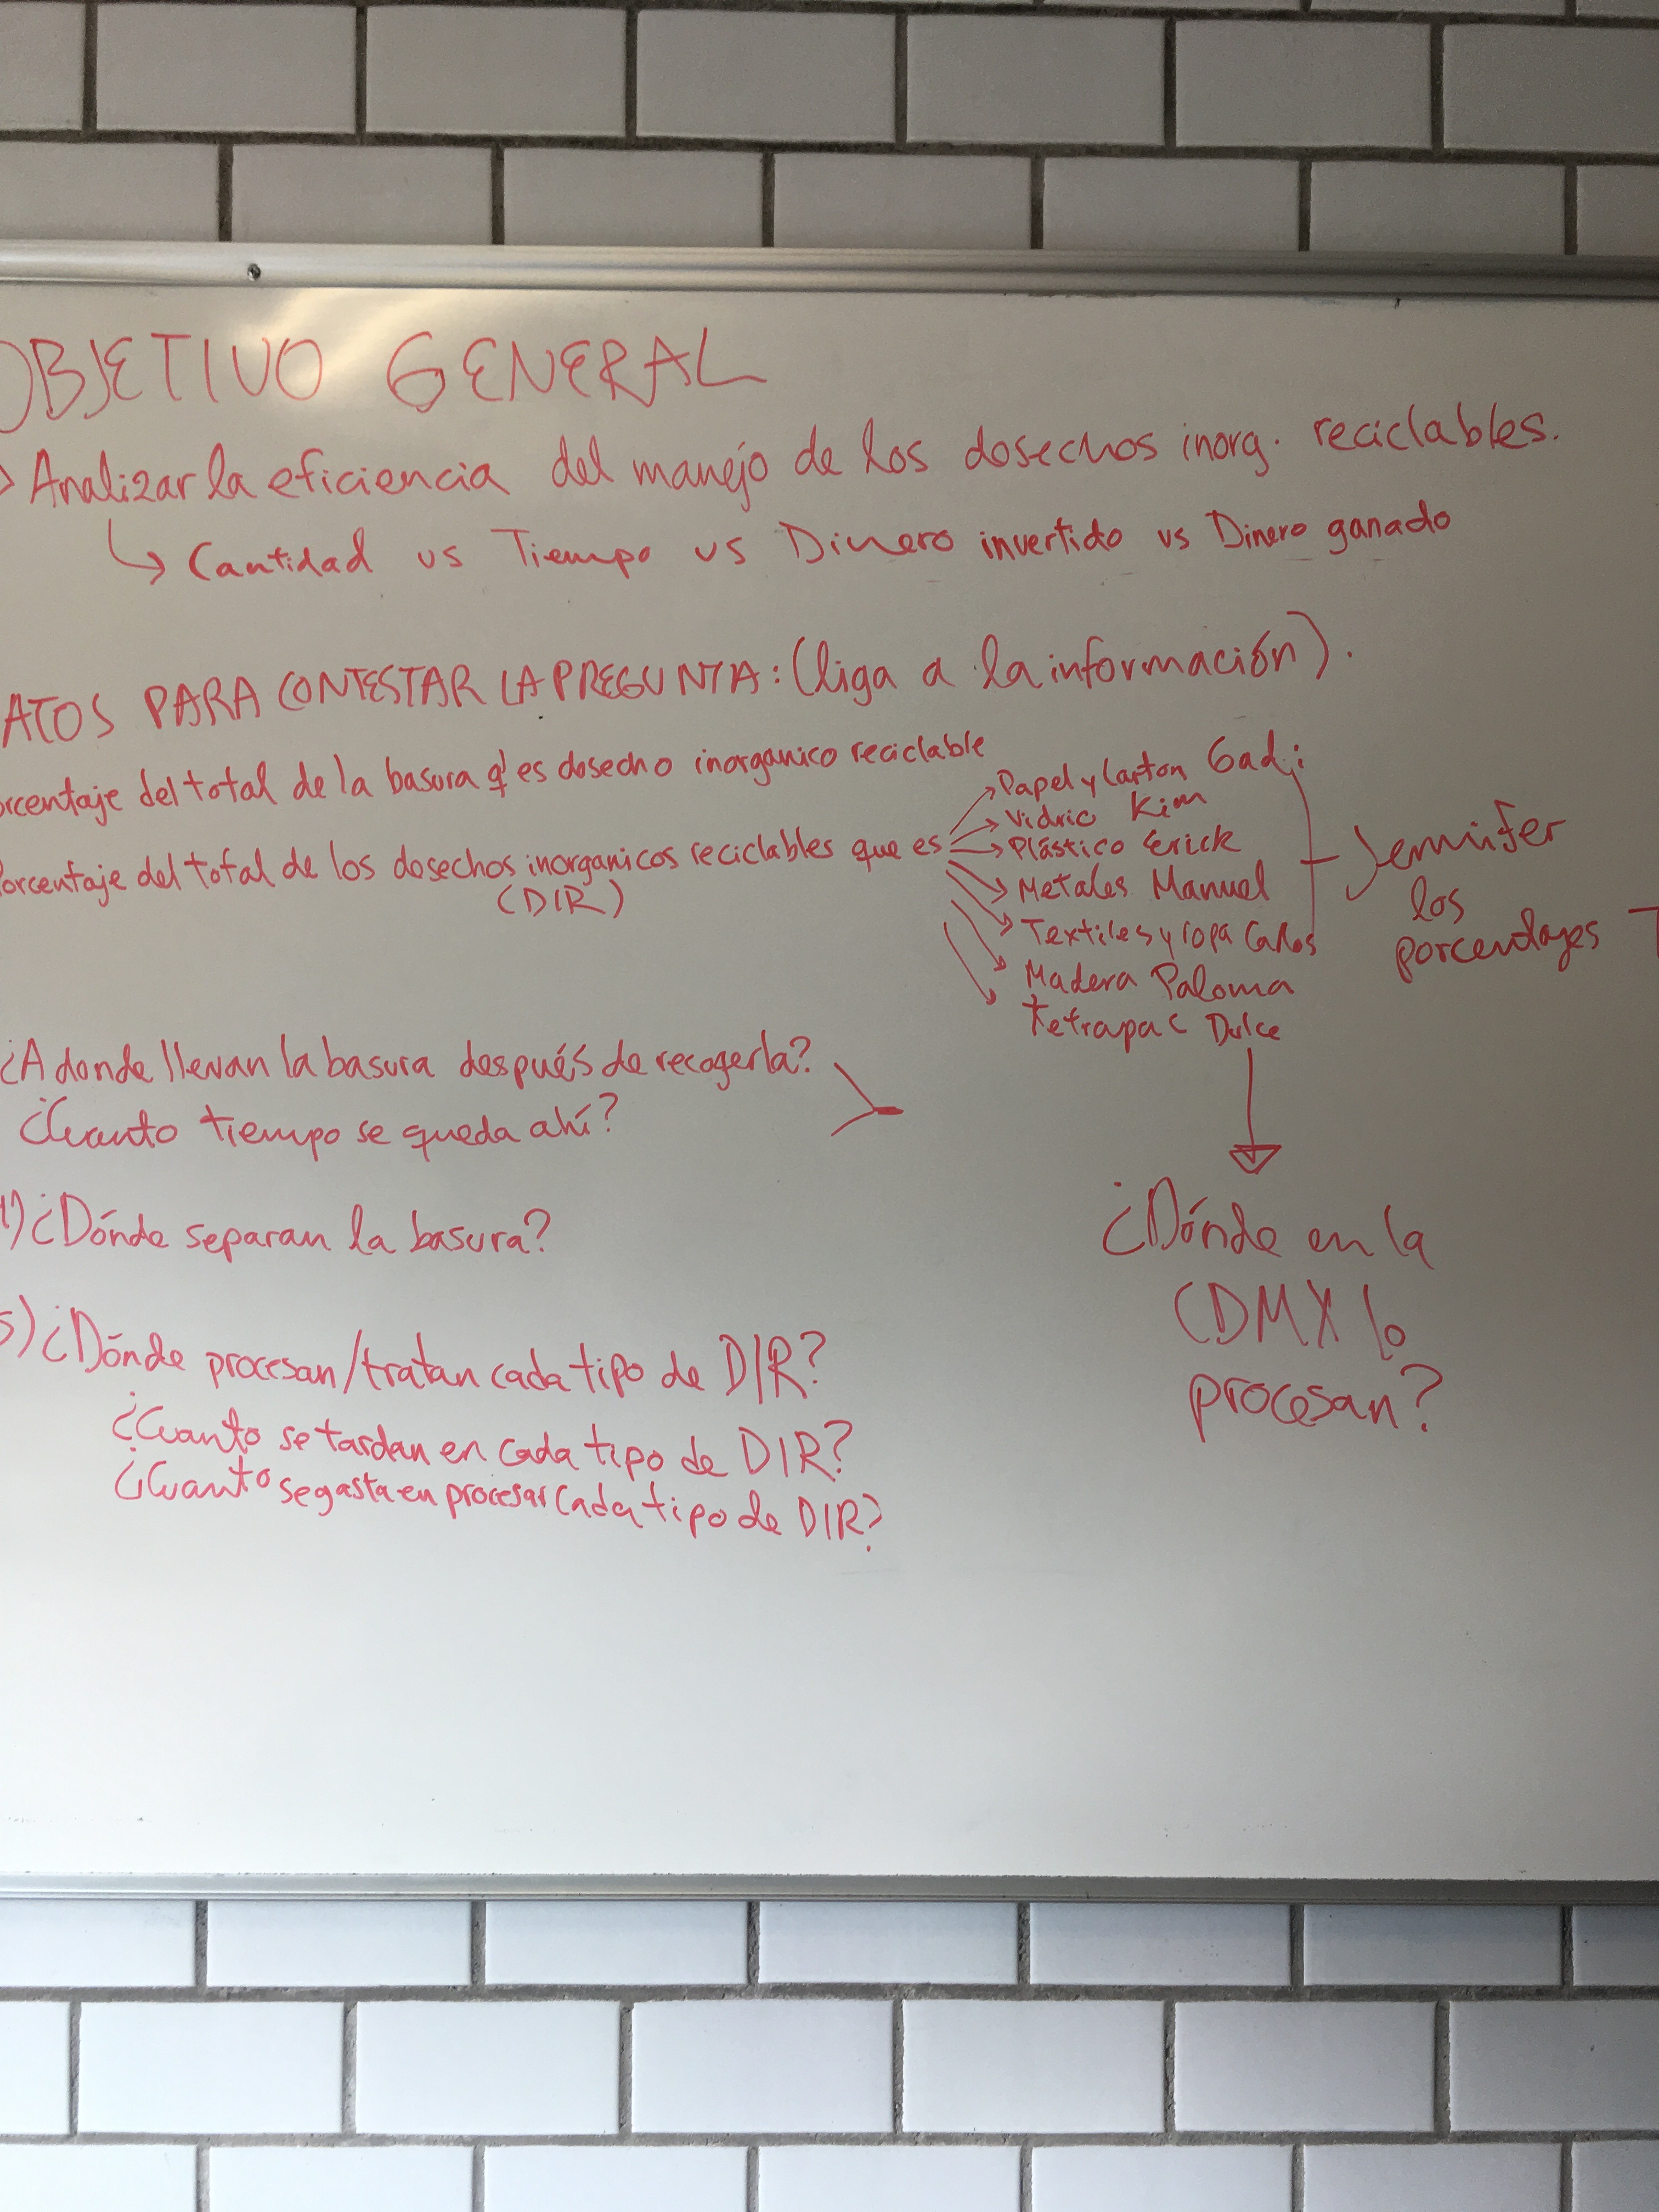 OBJETIVO GENERAL
Analizar la eficiencia del manejo de los dosechos inorg. reciclables.
↳ Cantidad vs Tiempo vs Dinero invertido vs Dinero ganado
ATOS PARA CONTESTAR LA PREGUNTA: (liga a la información).
rcentaje del total de la basura q' es dosecho inorganico reciclable
Porcentaje del total de los dosechos inorganicos reciclables que es
(DIR)
→ Papel y Carton Gadi
→ Vidrio Kim
→ Plástico Erick
→ Metales Manuel
→ Textiles y ropa Carlos
→ Madera Paloma
→ Tetrapac Dulce
Jennifer
los
porcentajes
¿A donde llevan la basura después de recogerla?
¿Cuanto tiempo se queda ahí?
4) ¿Dónde separan la basura?
5) ¿Dónde procesan/tratan cada tipo de DIR?
¿Cuanto se tardan en cada tipo de DIR?
¿Cuanto se gasta en procesar cada tipo de DIR?
¿Dónde en la
CDMX lo
procesan?